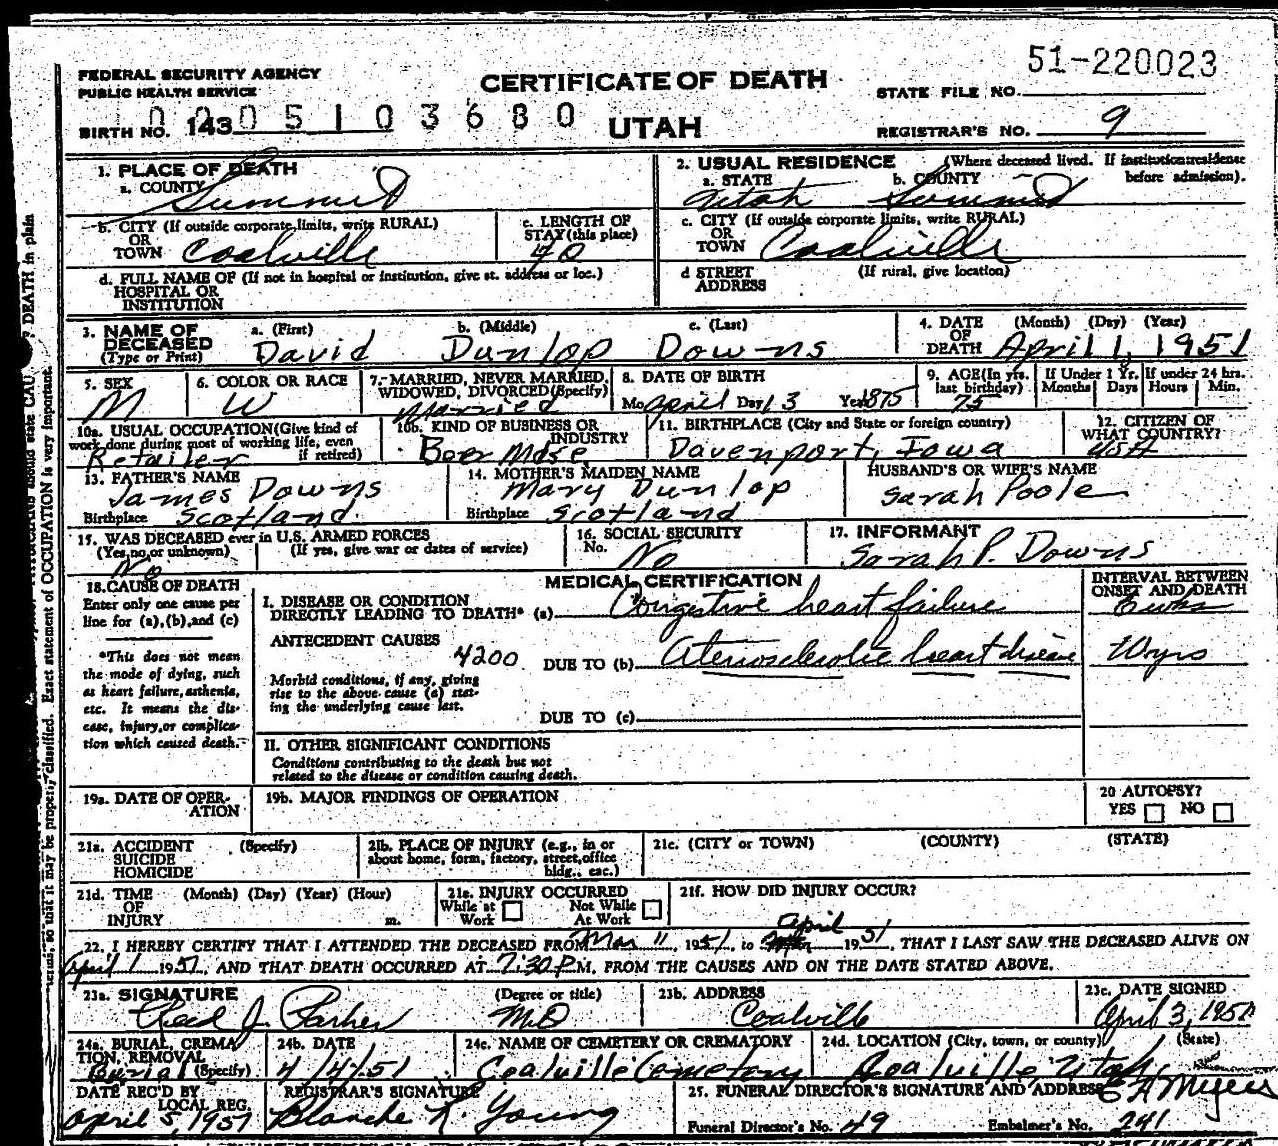 51-220023
FEDERAL SECURITY AGENCY
PUBLIC HEALTH SERVICE
CERTIFICATE OF DEATH
STATE FILE NO.
0005103680
BIRTH NO. 143
UTAH
REGISTRAR'S NO. 9
1. PLACE OF DEATH
a. COUNTY Summit
2. USUAL RESIDENCE (Where deceased lived. If institution: residence before admission).
a. STATE Utah b. COUNTY Summit
b. CITY (If outside corporate limits, write RURAL) OR TOWN Coalville
c. LENGTH OF STAY (this place) 40
c. CITY (If outside corporate limits, write RURAL) OR TOWN Coalville
d. FULL NAME OF (If not in hospital or institution, give st. address or loc.) HOSPITAL OR INSTITUTION
d STREET ADDRESS (If rural, give location)
3. NAME OF DECEASED (Type or Print) a. (First) David b. (Middle) Dunlop c. (Last) Downs
4. DATE OF DEATH (Month) (Day) (Year) April 1, 1951
5. SEX M
6. COLOR OR RACE W
7. MARRIED, NEVER MARRIED, WIDOWED, DIVORCED (Specify) Married
8. DATE OF BIRTH Mo. April Day 13 Year 1875
9. AGE (In yrs. last birthday) 75
If Under 1 Yr. Months Days
If under 24 hrs. Hours Min.
10a. USUAL OCCUPATION (Give kind of work done during most of working life, even if retired) Retailer
10b. KIND OF BUSINESS OR INDUSTRY Beer Mdse
11. BIRTHPLACE (City and State or foreign country) Davenport, Iowa
12. CITIZEN OF WHAT COUNTRY? USA
13. FATHER'S NAME James Downs
Birthplace Scotland
14. MOTHER'S MAIDEN NAME Mary Dunlop
Birthplace Scotland
HUSBAND'S OR WIFE'S NAME Sarah Poole
15. WAS DECEASED ever in U.S. ARMED FORCES
(Yes, no, or unknown) No (If yes, give war or dates of service)
16. SOCIAL SECURITY No. No
17. INFORMANT Sarah P. Downs
18. CAUSE OF DEATH
Enter only one cause per line for (a), (b), and (c)
*This does not mean the mode of dying, such as heart failure, asthenia, etc. It means the disease, injury, or complication which caused death.
MEDICAL CERTIFICATION
INTERVAL BETWEEN ONSET AND DEATH
I. DISEASE OR CONDITION DIRECTLY LEADING TO DEATH* (a) Congestive heart failure
ANTECEDENT CAUSES
4200 DUE TO (b) Ateriosclerotic heart disease 10 yrs
Morbid conditions, if any, giving rise to the above cause (a) stating the underlying cause last.
DUE TO (c)
II. OTHER SIGNIFICANT CONDITIONS
Conditions contributing to the death but not related to the disease or condition causing death.
19a. DATE OF OPERATION
19b. MAJOR FINDINGS OF OPERATION
20 AUTOPSY? YES NO
21a. ACCIDENT SUICIDE HOMICIDE (Specify)
21b. PLACE OF INJURY (e.g., in or about home, form, factory, street, office bldg., eac.)
21c. (CITY or TOWN) (COUNTY) (STATE)
21d. TIME OF INJURY (Month) (Day) (Year) (Hour) m.
21e. INJURY OCCURRED While at Work Not While At Work
21f. HOW DID INJURY OCCUR?
22. I HEREBY CERTIFY THAT I ATTENDED THE DECEASED FROM Mar 11, 1951, to April 1951, THAT I LAST SAW THE DECEASED ALIVE ON
April 1 1951, AND THAT DEATH OCCURRED AT 7:30 P.M. FROM THE CAUSES AND ON THE DATE STATED ABOVE.
23a. SIGNATURE J. Parker (Degree or title) M.D
23b. ADDRESS Coalville
23c. DATE SIGNED April 3, 1951
24a. BURIAL, CREMATION, REMOVAL (Specify) Burial
24b. DATE 4/4/51
24c. NAME OF CEMETERY OR CREMATORY Coalville Cemetery
24d. LOCATION (City, town, or county) (State) Coalville Utah
DATE REC'D BY LOCAL REG. April 5, 1951
REGISTRAR'S SIGNATURE Blanche K. Young
25. FUNERAL DIRECTOR'S SIGNATURE AND ADDRESS Myers
Funeral Director's No. 49 Embalmer's No. 241